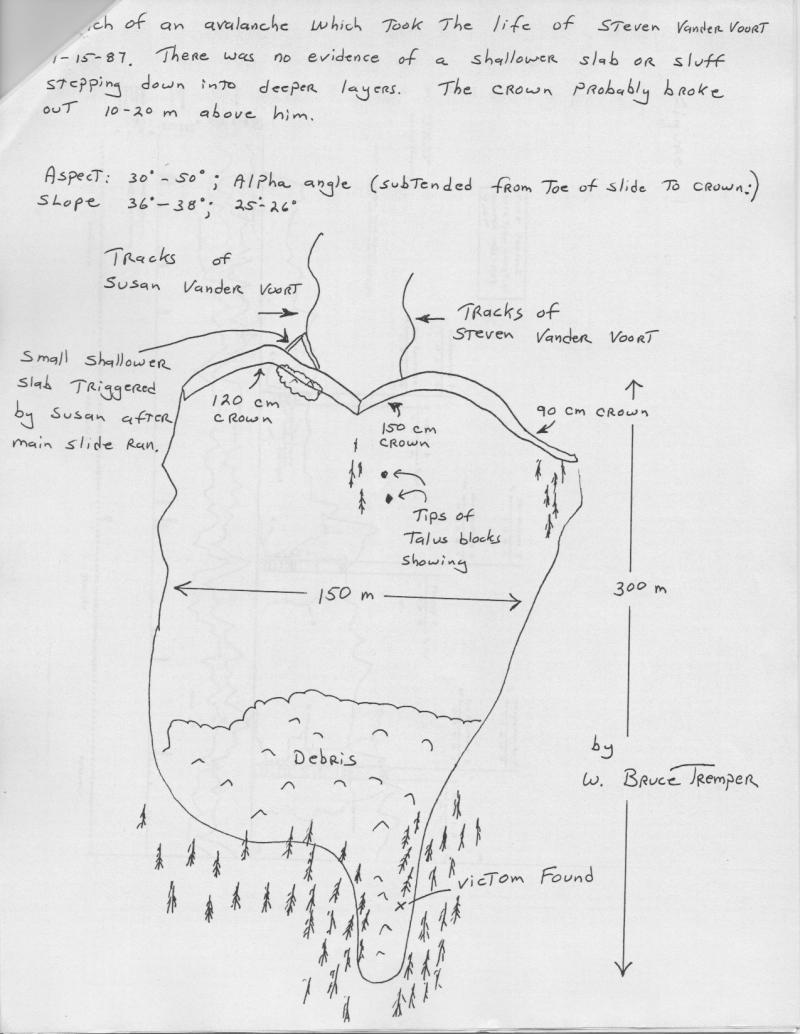 of an avalanche which took the life of Steven Vander Voort
1-15-87. There was no evidence of a shallower slab or sluff
stepping down into deeper layers. The crown probably broke
out 10-20 m above him.
Aspect: 30° - 50° ; Alpha angle (subtended from toe of slide to crown:)
Slope 36° - 38°; 25° - 26°
Tracks of
Susan Vander Voort
Tracks of
Steven Vander Voort
Small shallower
slab triggered
by Susan after
main slide ran.
120 cm
crown
150 cm
crown
90 cm crown
Tips of
Talus blocks
showing
150 m
300 m
Debris
by
W. Bruce Tremper
Victom Found